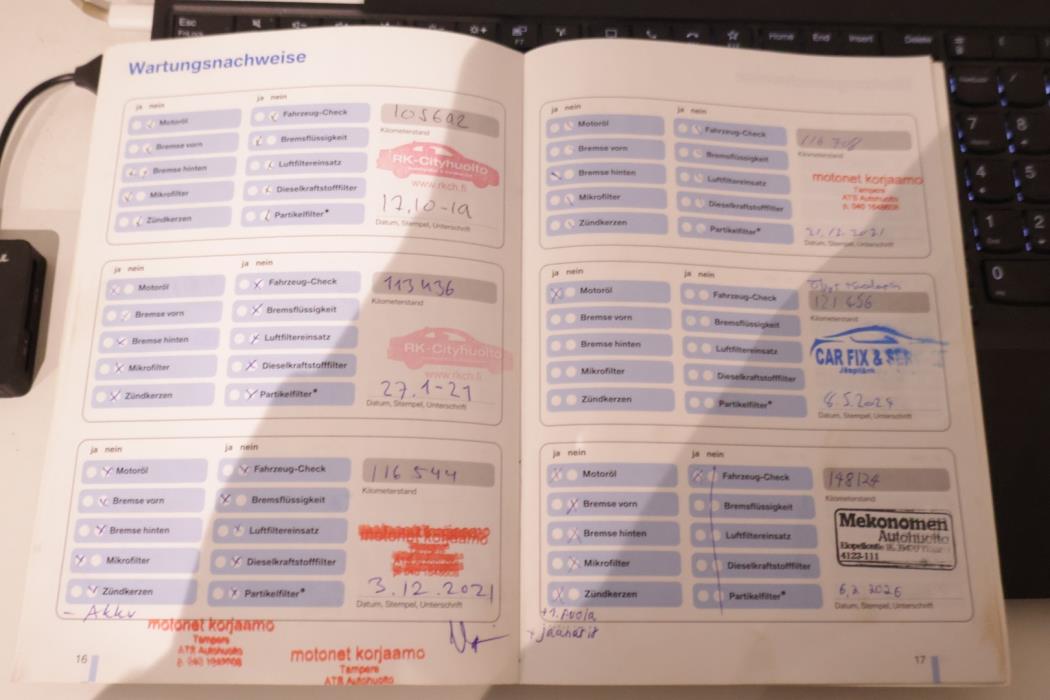 Esc
FnLock
F7
Home
End
Insert
Delete
7
8
4
5
1
2
0
Wartungsnachweise
ja nein
ja nein
Motoröl
Fahrzeug-Check
105602
Bremse vorn
Bremsflüssigkeit
Kilometerstand
Bremse hinten
Luftfiltereinsatz
RK-Cityhuolto
www.rkch.fi
Mikrofilter
Dieselkraftstofffilter
17.10-19
Zündkerzen
Partikelfilter*
Datum, Stempel, Unterschrift
ja nein
ja nein
Motoröl
Fahrzeug-Check
113436
Bremse vorn
Bremsflüssigkeit
Kilometerstand
Bremse hinten
Luftfiltereinsatz
RK-Cityhuolto
www.rkch.fi
Mikrofilter
Dieselkraftstofffilter
27.1-21
Zündkerzen
Partikelfilter*
Datum, Stempel, Unterschrift
ja nein
ja nein
Motoröl
Fahrzeug-Check
116544
Bremse vorn
Bremsflüssigkeit
Kilometerstand
Bremse hinten
Luftfiltereinsatz
motonet korjaamo
Mikrofilter
Dieselkraftstofffilter
3.12.2021
Zündkerzen
Partikelfilter*
Datum, Stempel, Unterschrift
- Akku
motonet korjaamo
Tampere
ATB Autohuolto
motonet korjaamo
Tampere
ATB Autohuolto
16
ja nein
ja nein
Motoröl
Fahrzeug-Check
116708
Bremse vorn
Bremsflüssigkeit
Kilometerstand
Bremse hinten
Luftfiltereinsatz
motonet korjaamo
Tampere
ATB Autohuolto
Mikrofilter
Dieselkraftstofffilter
21.12.2021
Zündkerzen
Partikelfilter*
Datum, Stempel, Unterschrift
ja nein
ja nein
Motoröl
Fahrzeug-Check
121656
Bremse vorn
Bremsflüssigkeit
Kilometerstand
Bremse hinten
Luftfiltereinsatz
CAR FIX &
Mikrofilter
Dieselkraftstofffilter
8.5.2024
Zündkerzen
Partikelfilter*
Datum, Stempel, Unterschrift
ja nein
ja nein
Motoröl
Fahrzeug-Check
148124
Bremse vorn
Bremsflüssigkeit
Kilometerstand
Bremse hinten
Luftfiltereinsatz
Mekonomen
Autohuolto
4123-111
Mikrofilter
Dieselkraftstofffilter
6.2.2026
Zündkerzen
Partikelfilter*
Datum, Stempel, Unterschrift
+ jäähdrit
17